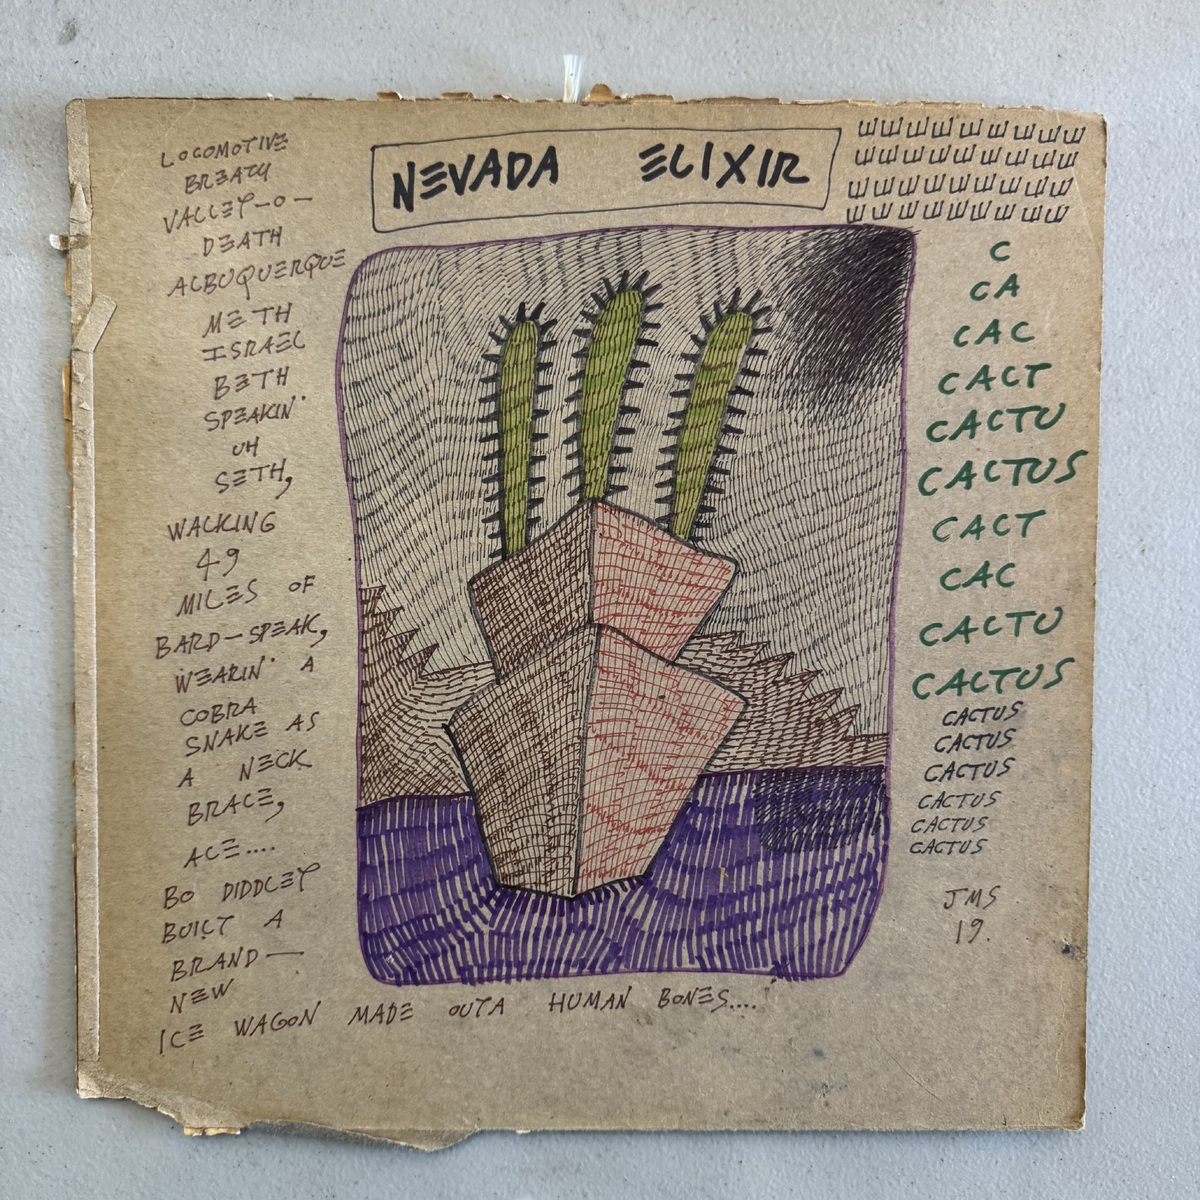 NEVADA ELIXIR
LOCOMOTIVE
BREATH
VALLEY-O-
DEATH
ALBUQUERQUE
METH
ISRAEL
BETH
SPEAKIN'
UH
SETH,
WALKING
49
MILES OF
BARD-SPEAK,
WEARIN' A
COBRA
SNAKE AS
A NECK
BRACE,
ACE....
BO DIDDLEY
BUILT A
BRAND-
NEW
ICE WAGON MADE OUTA HUMAN BONES....
C
CA
CAC
CACT
CACTU
CACTUS
CACT
CAC
CACTU
CACTUS
CACTUS
CACTUS
CACTUS
CACTUS
CACTUS
CACTUS
JMS
19.